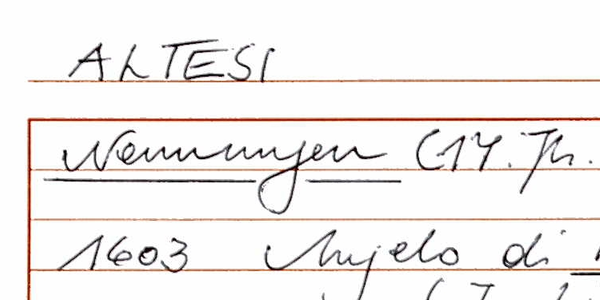 ALTESI
Nennungen (17. Jh.
1603 Angelo di